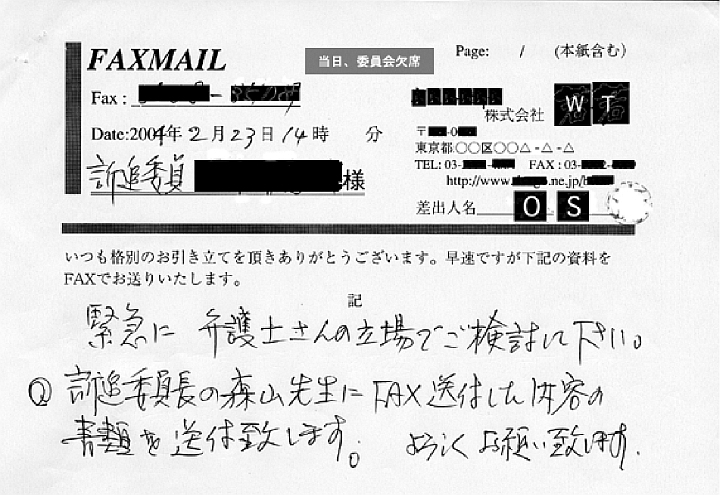 FAXMAIL
当日、委員会欠席
Page: / (本紙含む)
Fax :
株式会社 W T
Date:2004年2月23日14時 分
〒
東京都○○区○○△-△-△
TEL: 03- FAX : 03-
http://www. .ne.jp/
訴追委員 様
差出人名 O S
いつも格別のお引き立てを頂きありがとうございます。早速ですが下記の資料を
FAXでお送りいたします。
記
緊急に 弁護士さんの立場でご検討して下さい。
② 訴追委員長の森山先生にFAX送付した内容の
書類を送付致します。 よろしくお願い致します.